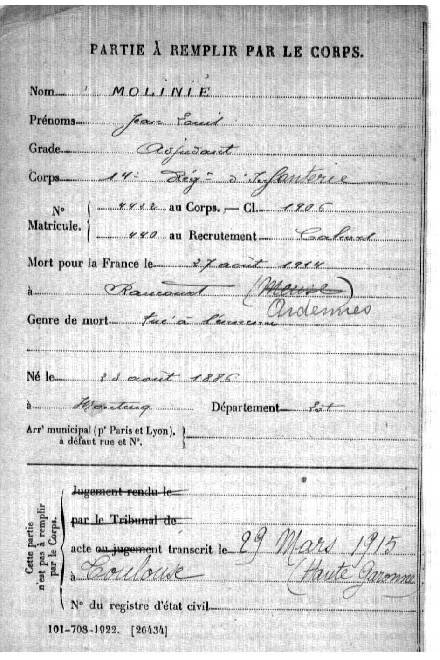 PARTIE À REMPLIR PAR LE CORPS.
Nom MOLINIÉ
Prénoms Jean Louis
Grade Adjudant
Corps 14e Régt d'Infanterie
N° Matricule. 4442 au Corps. — Cl. 1906
440 au Recrutement Cahors
Mort pour la France le 27 août 1914
à Raucourt (Meuse)
Ardennes
Genre de mort tué à l'ennemi
Né le 28 août 1886
à Montcuq Département Lot
Arrt municipal (pr Paris et Lyon), à défaut rue et N°.
Cette partie n'est pas à remplir par le Corps.
Jugement rendu le
par le Tribunal de
acte ou jugement transcrit le 29 Mars 1915
à Toulouse (Haute Garonne
N° du registre d'état civil
101-708-1922. [26434]